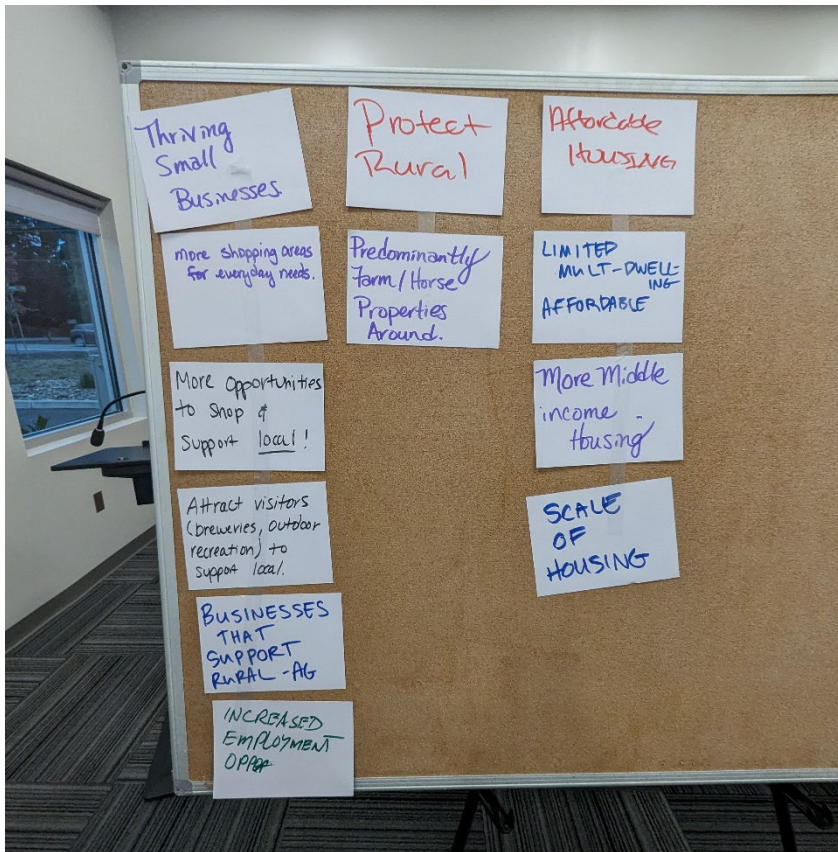 Thriving
Small
Businesses.
more shopping areas
for everyday needs.
More opportunities
to Shop &
support local!
Attract visitors
(breweries, outdoor
recreation) to
support local.
BUSINESSES
THAT
SUPPORT
RURAL-AG
INCREASED
EMPLOYMENT
Protect
Rural
Predominantly
Farm/Horse
Properties
Around.
Affordable
HOUSING
LIMITED
MULT-DWELL-
ING
AFFORDABLE
More Middle
income -
Housing
SCALE
OF
HOUSING